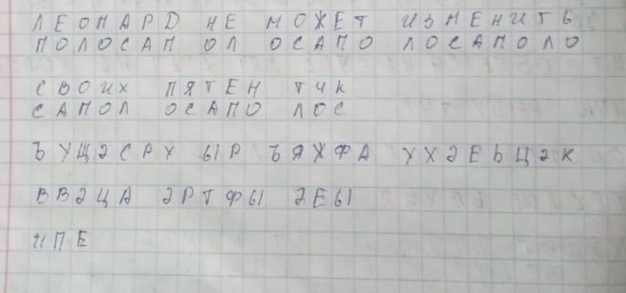 ЛЕОПАРД НЕ МОЖЕТ ИЗМЕНИТЬ
ПОЛОСАП ОЛ ОСАПО ЛОСАПОЛО
СВОИХ ПЯТЕН ТЧК
САПОЛ ОСАПО ЛОС
ЪУЩЭСРУ ЫР ЪЯЖФА УХЭЕЬЦЭК
ВВЭЦА ЭРТФЫ ЭЕЫ
ИПЕ